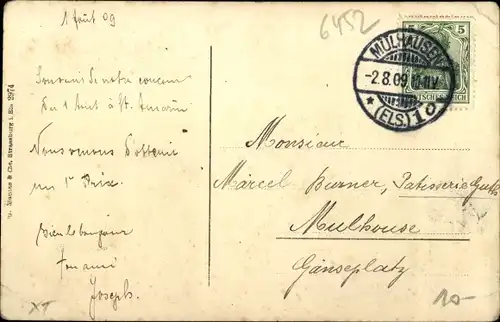 1 Août 09
6452
5 5
MÜLHAUSEN
-2.8.09.10-11V.
DEUTSCHES REICH
* (ELS) 1 c
Souvenir de notre concours
du 1 Août à St. Amarin
Nous venons d'obtenir
un 1er Prix.
bien le bonjour
Ton ami
Joseph.
Monsieur
Marcel Burner, Patisserie
Mulhouse
Gänseplatz
& Cie. Strassburg i. Els. 2974
XT
10-